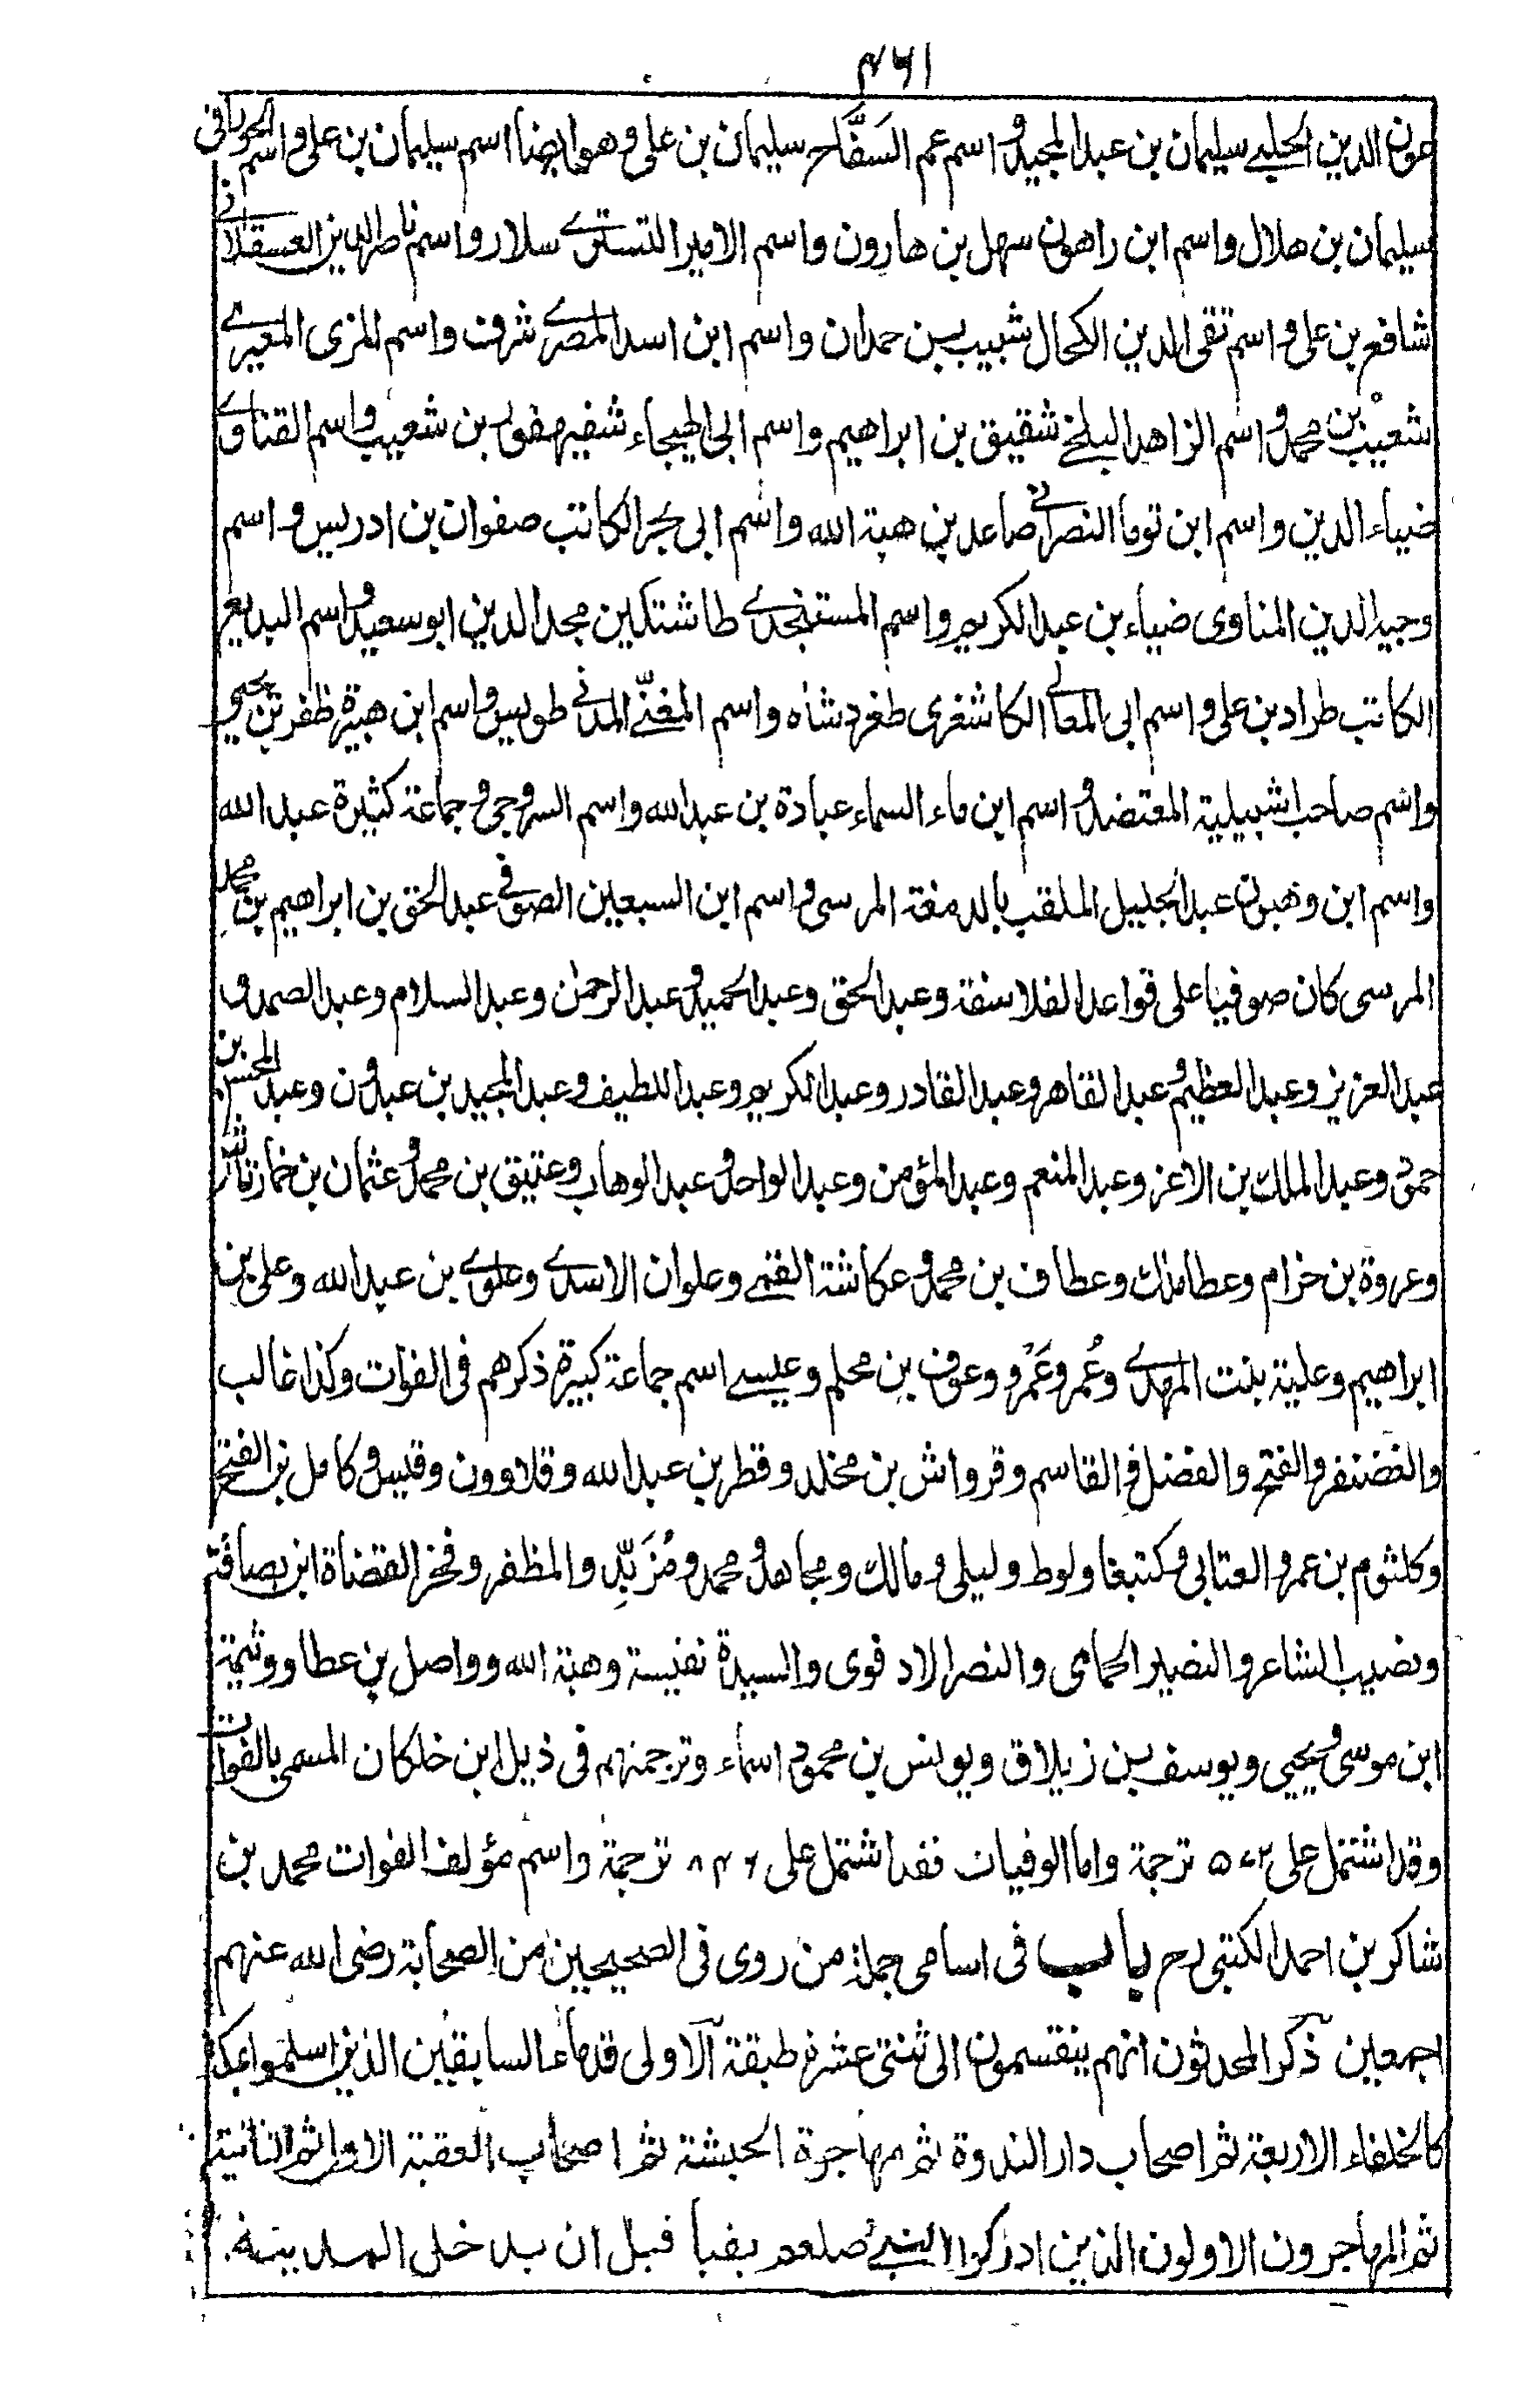 ۴۶۱
عون الدين الحلبے سليمان بن عبد المجيد و اسم عم السَفَّاح سليمان بن على و هو ايضا اسم سليمان بن على و اسم الحورانى
سليمان بن هلال و اسم ابن راهون سهل بن هارون و اسم الامير التسترے سلار و اسم ناصر الدين العسقلانى
شافع بن على و اسم تقى الدين الكحال شبيب بن حمدان و اسم ابن اسد المصرے شرف و اسم المزى المعيرے
شعيب بن محمد و اسم الزاهد البلخے شقيق بن ابراهيم و اسم ابى الهيجاء شفير صفوان بن شعيب و اسم القناوے
ضياء الدين و اسم ابن توما النصرانے صاعد بن هبة الله و اسم ابى بحر الكاتب صفوان بن ادريس و اسم
وجيه الدين المناوى ضياء بن عبد الكريم و اسم المستنجدے طاشتكين مجد الدين ابو سعيد و اسم البديع
الكاتب طراد بن على و اسم ابى المعالے الكاشغرى طغرد شاه و اسم المغنّے المدنے طويس و اسم ابن هبيرة ظفر بن يحيى
و اسم صاحب اشبيلية المعتضد و اسم ابن ماء السماء عبادة بن عبد الله و اسم السروجى و جماعة كثيرة عبد الله
و اسم ابن وهبون عبد الجليل الملقب بالدمغة المرسى و اسم ابن السبعين الصوفے عبد الحق بن ابراهيم بن محمد
المرسى كان صوفيا على قواعد الفلاسفة و عبد الحق و عبد الحميد و عبد الرحمن و عبد السلام و عبد الصمد و
عبد العزيز و عبد العظيم و عبد القاهر و عبد القادر و عبد الكريم و عبد اللطيف و عبد المجيد بن عبدون و عبد المحسن بن
حمود و عبد الملك بن الاعز و عبد المنعم و عبد المؤمن و عبد الواحد و عبد الوهاب و عتيق بن محمد و عثمان بن خمارتاش
و عروة بن حزام و عطا ملك و عطاف بن محمد و عكاشة القمے و علوان الاسدے و علوے بن عبد الله و على بن
ابراهيم و علية بنت المهدے و عُمر و عَمْرو و عوف بن محلم و عيسے اسم جماعة كبيرة ذكرهم فى الفوات و كذا غالب
و الغضنفر و الفتح و الفضل و القاسم و قرواش بن مخلد و قطر بن عبد الله و قلاوون و قيس و كامل بن الفتح
و كلثوم بن عمرو العتابى و كتبغا و لوط و ليلى و مالك و مجاهد و محمد و مُزَبِّد و المظفر و فخر القضاة ابن بصاقة
و نصيب الشاعر و النصير الحمامى و النصر الادفوى و السيدة نفيسة و هبة الله و واصل بن عطا و وثيمة
ابن موسى و يحيى و يوسف بن زيلاق و يونس بن محمود اسماء و ترجمتهم فى ذيل ابن خلكان المسمى بالفوات
و قد اشتمل على ۵۷۲ ترجمة و اما الوفيات فقد اشتمل على ۸۴۶ ترجمة و اسم مؤلف الفوات محمد بن
شاكر بن احمد الكتبى رح باب فى اسامى جملة من روى فى الصحيحين من الصحابة رضى الله عنهم
اجمعين ذكر المحدثون انهم ينقسمون الى ثنتى عشرة طبقة الاولى قدماء السابقين الذين اسلموا بمكة
كالخلفاء الاربعة ثم اصحاب دار الندوة ثم مهاجرة الحبشة ثم اصحاب العقبة الاولى ثم الثانية
ثم المهاجرون الاولون الذين ادركوا النبےّ صلعم بقبا قبل ان يدخلى المدينة.